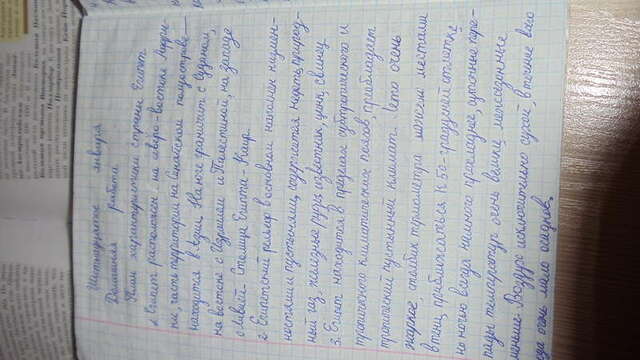 Шестнадцатое января
Домашняя работа
План характеристики страны Египет
1. Египет расположен на северо-востоке Африки,
часть территории на Синайском полуострове -
находится в Азии. На юге граничит с Суданом,
на востоке с Израилем и Палестиной, на западе
с Ливией. Столица Египта - Каир.
2. Египетский рельеф в основном наполнен низмен-
ностями и пустынями, содержится нефть, природ-
ный газ, железные руды, известняк, цинк, свинец.
3. Египет находится в пределах субтропического и
тропического климатических поясов, преобладает
тропический пустынный климат. Лето очень
жаркое, столбик термометра может местами
в тени, приближаться к 50-градусной отметке,
но ночью всегда намного прохладнее, суточные пере-
пады температур очень велики, межсезонные
меньше. Воздух исключительно сухой, в течение всего
ода очень мало осадков.